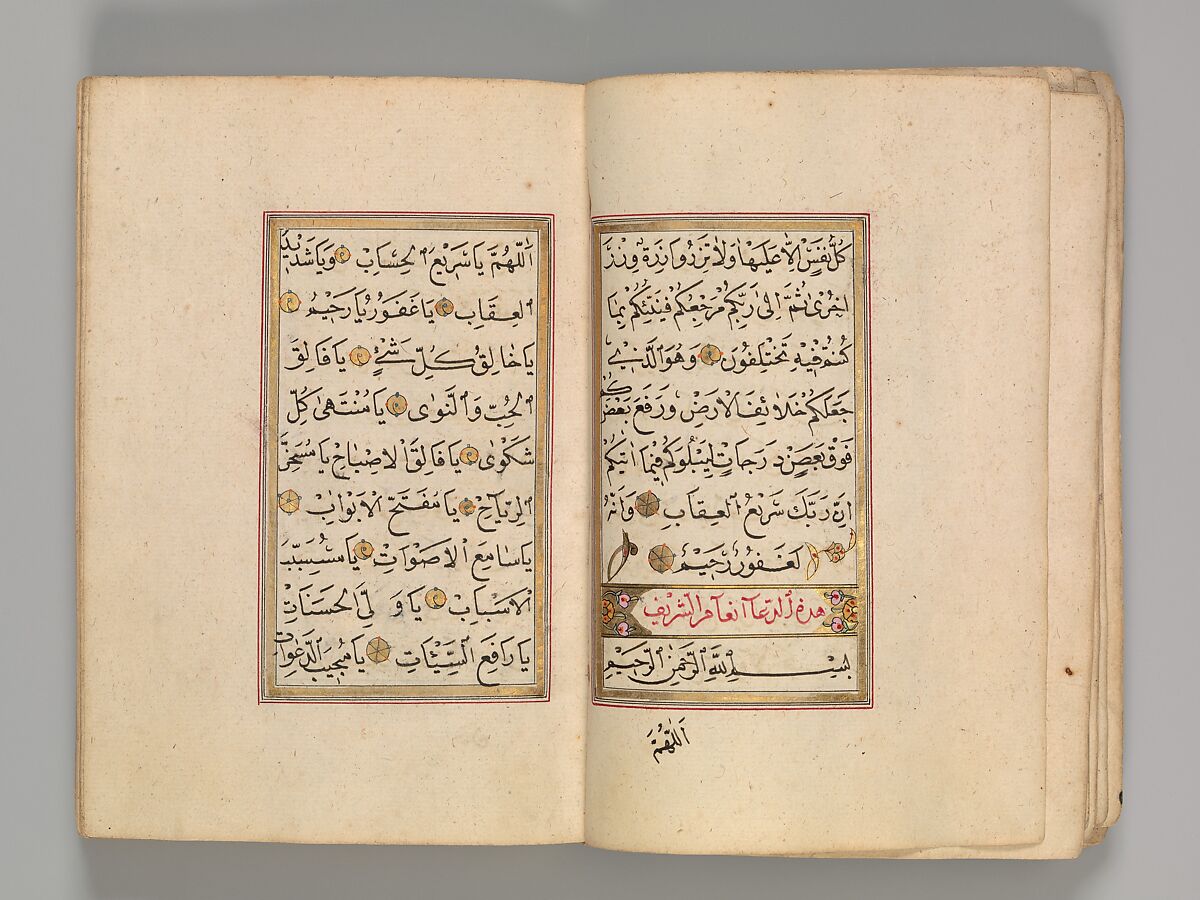 كُلُّ نَفْسٍ اِلَّا عَلَيْهَا وَلَا تَزِرُ وَازِرَةٌ وِزْرَ
اُخْرٰى ثُمَّ اِلٰى رَبِّكُمْ مَرْجِعُكُمْ فَيُنَبِّئُكُمْ بِمَا
كُنْتُمْ فِيهِ تَخْتَلِفُونَ وَهُوَ الَّذِي
جَعَلَكُمْ خَلَائِفَ الْاَرْضِ وَرَفَعَ بَعْضَكُمْ
فَوْقَ بَعْضٍ دَرَجَاتٍ لِيَبْلُوَكُمْ فِيمَا اٰتٰيكُمْ
اِنَّ رَبَّكَ سَرِيعُ الْعِقَابِ وَاِنَّهُ
لَغَفُورٌ رَحِيمٌ
هذه الدعاآ انعام الشريف
بِسْمِ اللّٰهِ الرَّحْمٰنِ الرَّحِيمِ
اَللّٰهُمَّ
اَللّٰهُمَّ يَا سَرِيعَ الْحِسَابِ وَيَا شَدِيدَ
الْعِقَابِ يَا غَفُورُ يَا رَحِيمُ
يَا خَالِقُ كُلِّ شَيْءٍ يَا فَالِقَ
الْحَبِّ وَالنَّوٰى يَا مُنْتَهٰى كُلِّ
شَكْوٰى يَا فَالِقَ الْاِصْبَاحِ يَا مُسَخِّرَ
الرِّيَاحِ يَا مُفَتِّحَ الْاَبْوَابِ
يَا سَامِعَ الْاَصْوَاتِ يَا مُسَبِّبَ
الْاَسْبَابِ يَا وَلِيَّ الْحَسَنَاتِ
يَا رَافِعَ السَّيِّئَاتِ يَا مُجِيبَ الدَّعَوَاتِ